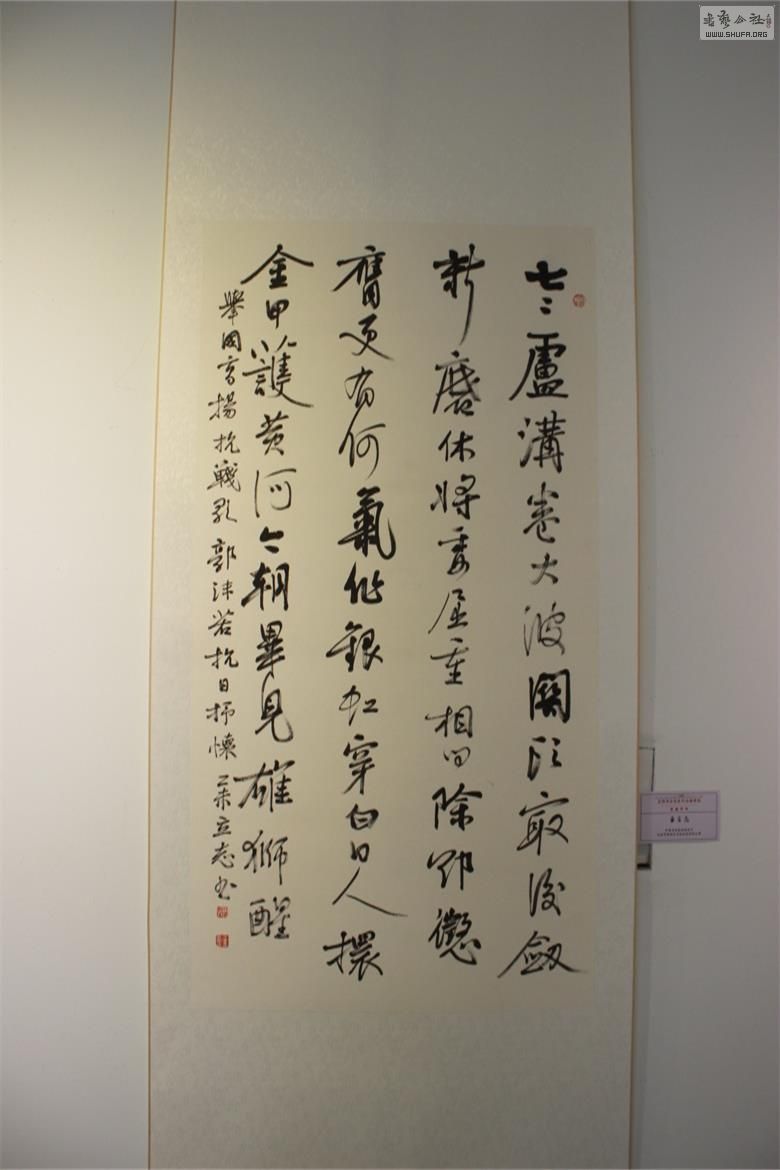 書藝公社
WWW.SHUFA.ORG
七〻盧溝卷大波關頭最後劍
新磨休將委屈重相問除卻懲
膺更有何氣作銀虹穿白日人擐
金甲護黃河今朝畢見雄獅醒
舉國高揚抗戰歌 郭沫若抗日抒懷 立志書